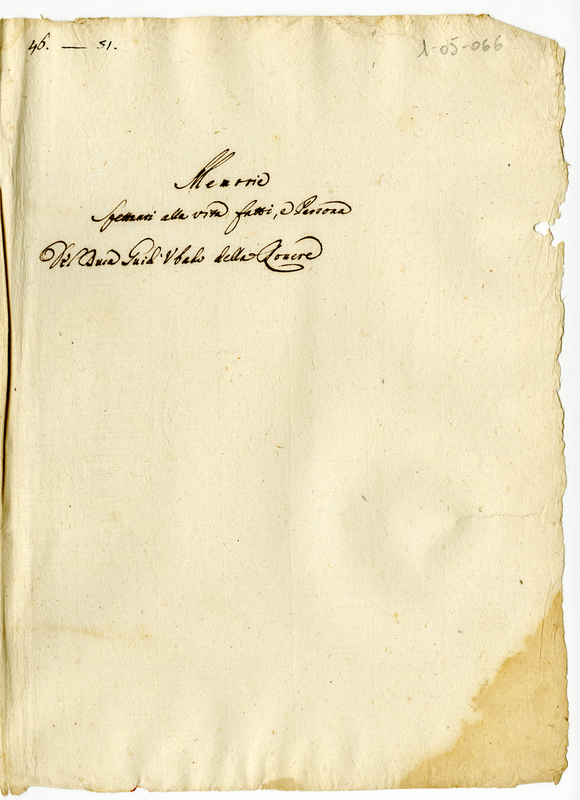 46. — 51.
1-05-066
Memorie
Spettanti alla vita fatti, e Persona
Del Duca Guid'Ubaldo della Rovere